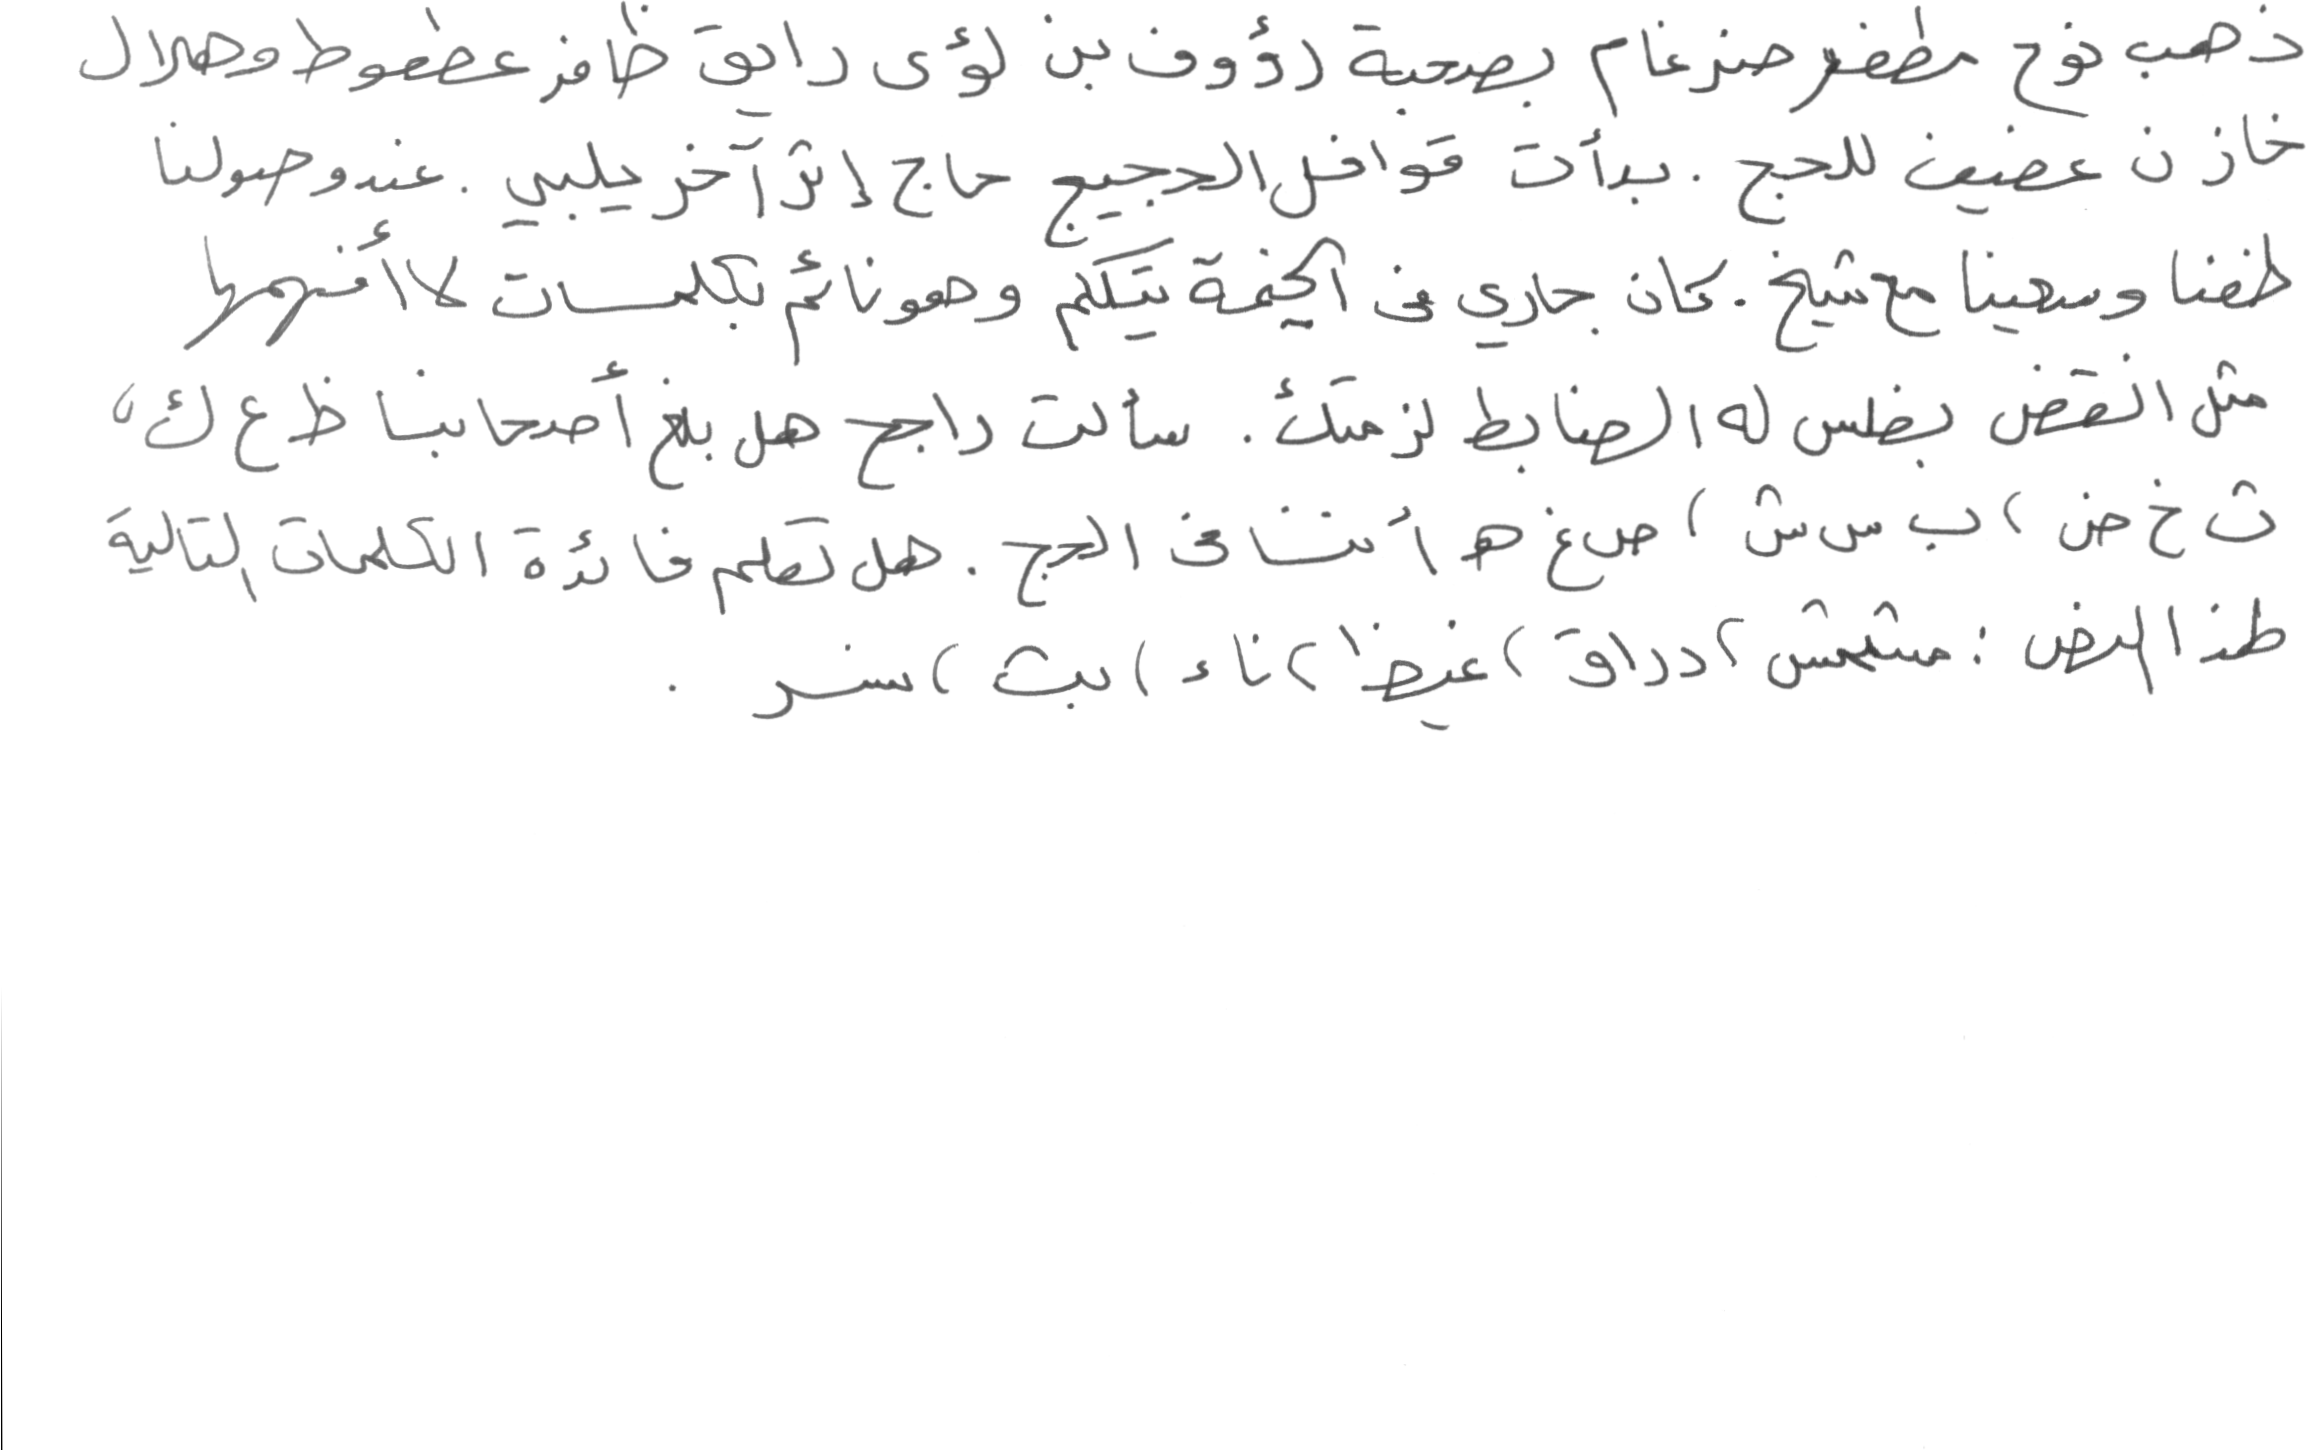 ذهب نوح مظفر ضرغام بصحبة رؤوف بن لؤى رايق ظافر عظعوط وهلال
خازن عفيف للحج . بدأت قوافل الحجيج حاج إثر آخر يلبي . عند وصولنا
طفنا وسعينا مع شيخ . كان جاري في الخيمة يتكلم وهو نائم بكلمات لا أفهمها
مثل انقض بظلس له الضابط لزمتك . سألت راجح هل بلغ أصحابنا ظ ع ك ،
ث خ ض ، ب س ش ، ص غ هـ أننا في الحج . هل تعلم فائدة الكلمات التالية
لهذا المرض : مشمش ، دراق ، غيظ ، ناء ، بث ، سنر .